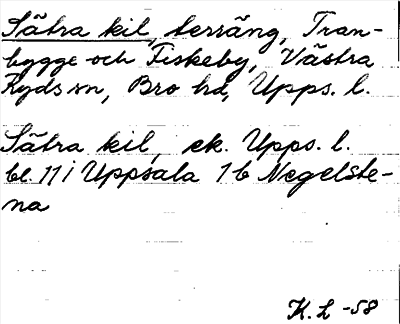 Sätra kil, terräng, Tran-
bygge och Fiskeby, Västra
Ryds sn, Bro hd, Upps. l.
Sätra kil, ek. Upps. l.
bl. 71 i Uppsala 1 b Negelste-
na
K. L -58